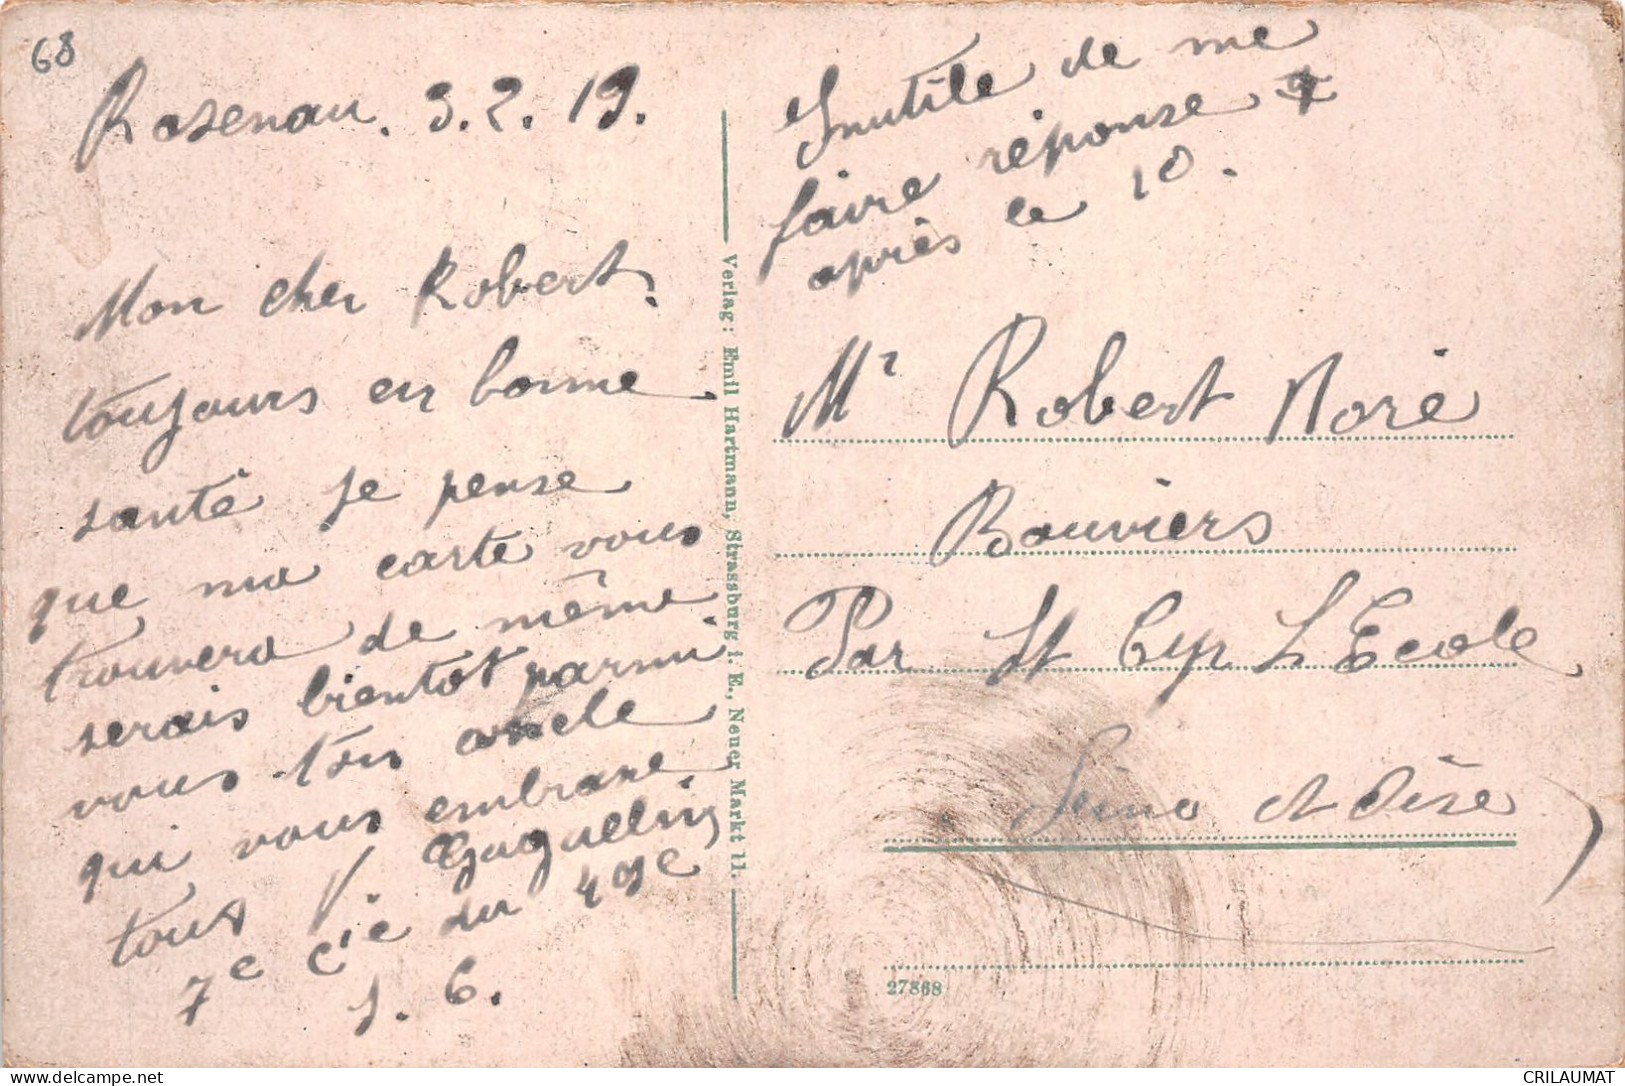 68
Rosenau. 3.2.19.
Mon cher Robert.
toujours en bonne
santé je pense
que ma carte vous
trouvera de même
serais bientot parmi
vous ton oncle
qui vous embrasse
tous
7e Cie du 49e
S. 6.
Verlag: Emil Hartmann, Strassburg i. E., Neuer Markt 11.
Inutile de me
faire réponse
après le 10.
Mr Robert Noré
Bouviers
Par St Cyr L Ecole
Seine et Oise
27868
CRILAUMAT